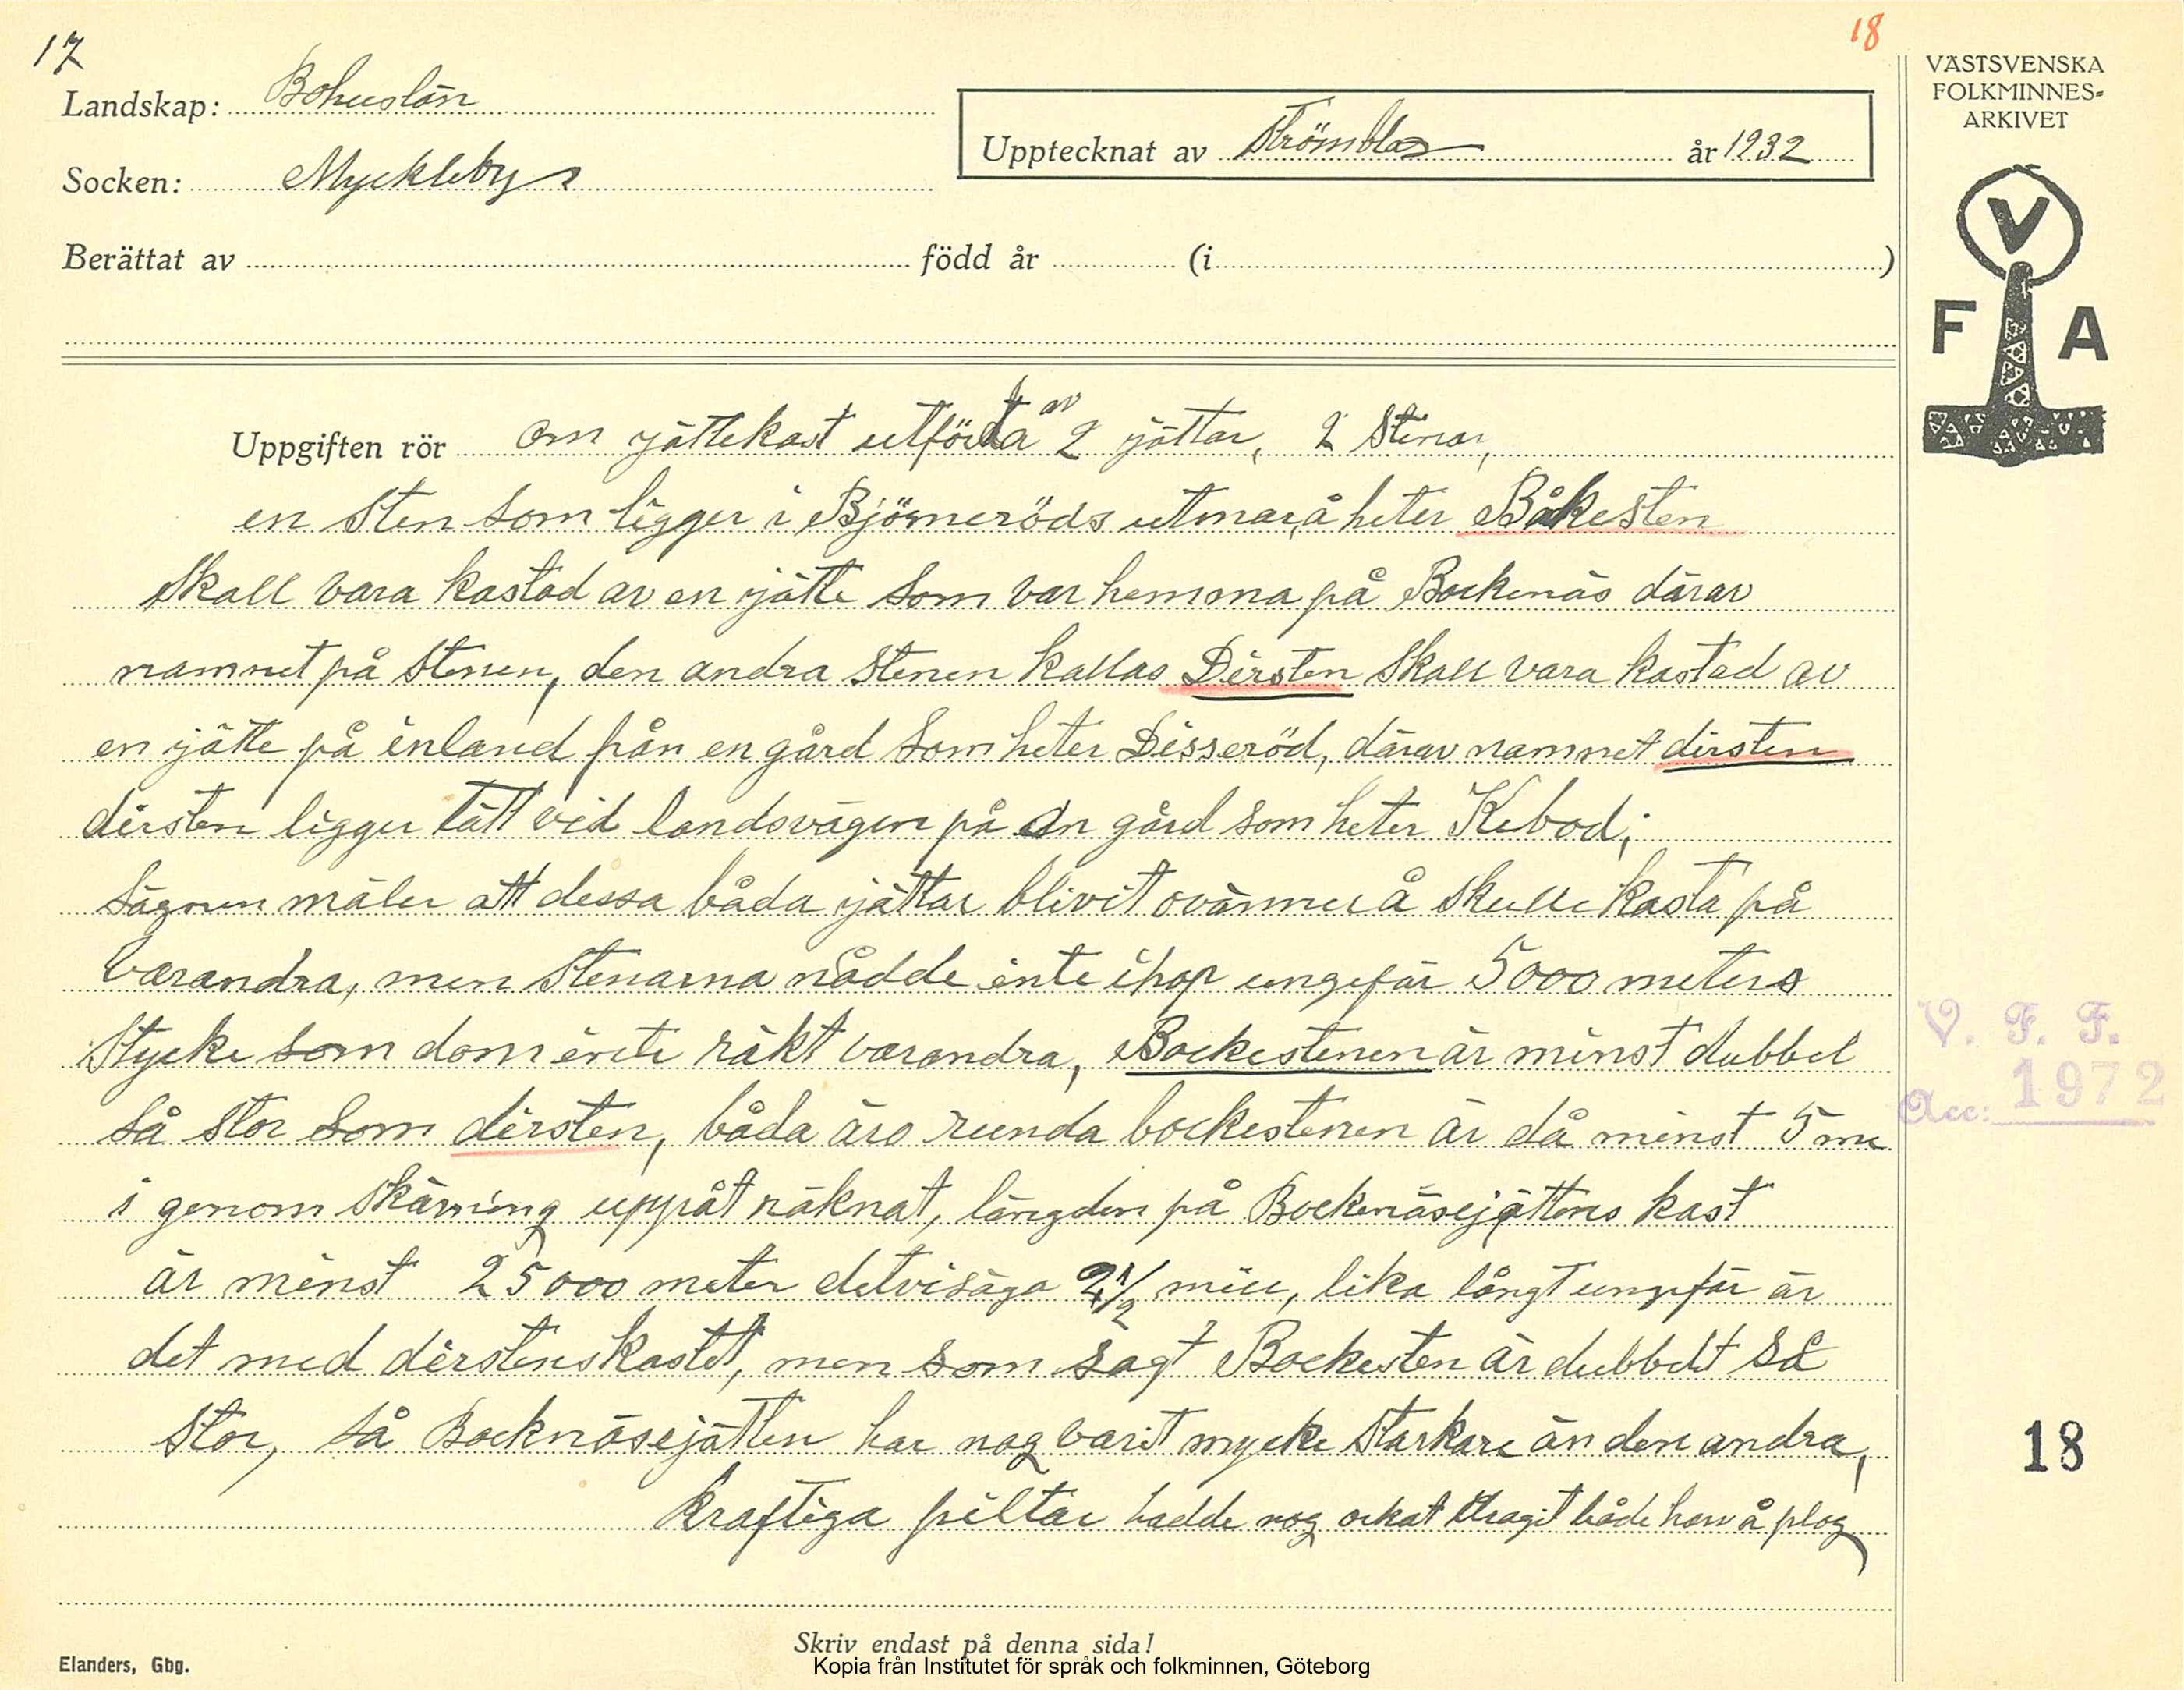 17
18
Landskap: Bohuslän
Socken: Myckleby
Upptecknat av Strömblad år 1932
Berättat av född år (i )
VÄSTSVENSKA
FOLKMINNES-
ARKIVET
V
F A
Uppgiften rör om jättekast utförda av 2 jättar, 2 Stenar,
en Sten som ligger i Björneröds utmark å heter Båkesten
skall vara kastad av en jätte som var hemma på Bockenäs därav
namnet på stenen, den andra Stenen kallas Dirsten Skall vara kastad av
en jätte på inland från en gård som heter Disseröd, därav namnet dirsten
dirsten ligger tätt vid landsvägen på en gård som heter Kebod;
Sägnen mäler att dessa båda jättar blivit ovänner å skulle kasta på
varandra, men Stenarna nådde inte ihop ungefär 5000 meters
Stycke som dom inte räkt varandra, Bockestenen är minst dubbel
så stor som dirsten, båda äro runda bockestenen är då minst 5 me
i genom skärning uppåt räknat, längden på Bockenäsejättens kast
är minst 25000 meter detvisäga 2 1/2 mill, lika långt ungefär är
det med dirstenskastet, men som sagt Bockesten är dubbelt så
Stor, så Bocknäsejätten har nog varit mycke Starkare än den andra,
kraftiga piltar hadde nog orkat dragit både harv å plog
V. F. F.
Acc: 1972
18
Skriv endast på denna sida!
Elanders, Gbg.
Kopia från Institutet för språk och folkminnen, Göteborg